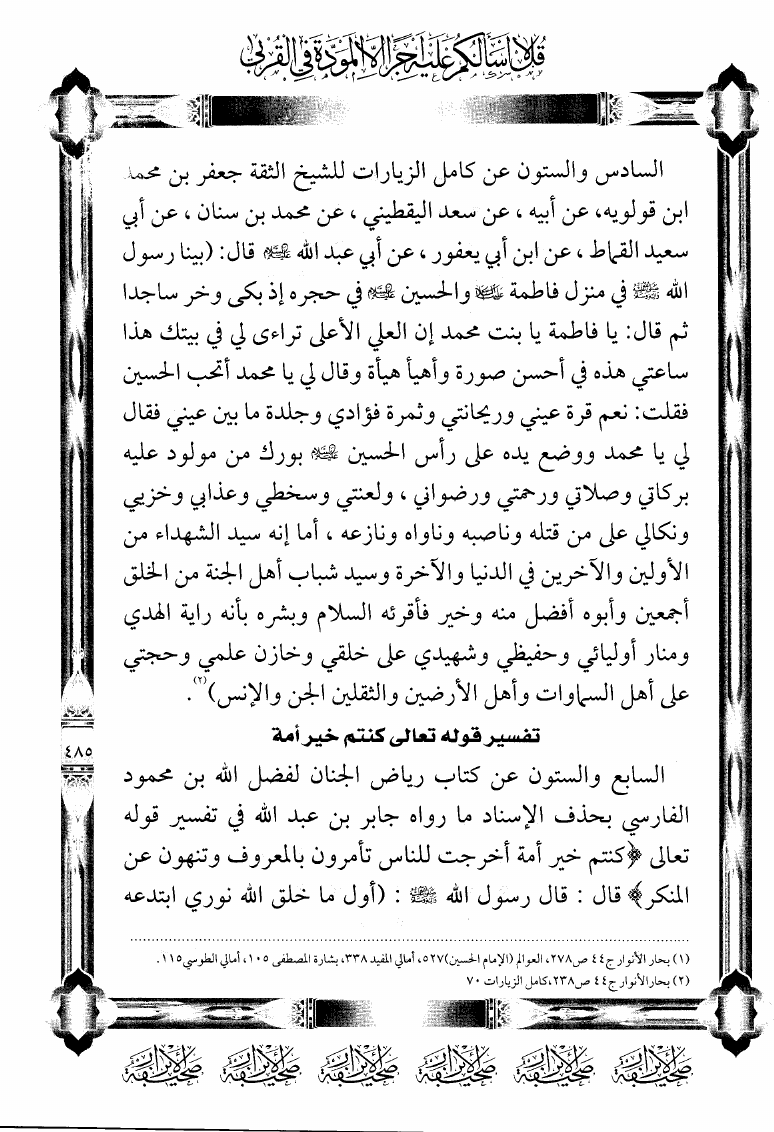 قل لا أسألكم عليه أجرا إلا المودة في القربى
السادس والستون عن كامل الزيارات للشيخ الثقة جعفر بن محمد
ابن قولويه، عن أبيه ، عن سعد اليقطيني ، عن محمد بن سنان ، عن أبي
سعيد القماط ، عن ابن أبي يعفور ، عن أبي عبد الله عليه السلام قال: (بينا رسول
الله ﷺ في منزل فاطمة عليها السلام والحسين عليه السلام في حجره إذ بكى وخر ساجدا
ثم قال: يا فاطمة يا بنت محمد إن العلي الأعلى تراءى لي في بيتك هذا
ساعتي هذه في أحسن صورة وأهيأ هيأة وقال لي يا محمد أتحب الحسين
فقلت: نعم قرة عيني وريحانتي وثمرة فؤادي وجلدة ما بين عيني فقال
لي يا محمد ووضع يده على رأس الحسين عليه السلام بورك من مولود عليه
بركاتي وصلاتي ورحمتي ورضواني ، ولعنتي وسخطي وعذابي وخزيي
ونكالي على من قتله وناصبه وناواه ونازعه ، أما إنه سيد الشهداء من
الأولين والآخرين في الدنيا والآخرة وسيد شباب أهل الجنة من الخلق
أجمعين وأبوه أفضل منه وخير فأقرئه السلام وبشره بأنه راية الهدي
ومنار أوليائي وحفيظي وشهيدي على خلقي وخازن علمي وحجتي
على أهل السماوات وأهل الأرضين والثقلين الجن والإنس)(٢).
تفسير قوله تعالى كنتم خير أمة
السابع والستون عن كتاب رياض الجنان لفضل الله بن محمود
الفارسي بحذف الإسناد ما رواه جابر بن عبد الله في تفسير قوله
تعالى ﴿كنتم خير أمة أخرجت للناس تأمرون بالمعروف وتنهون عن
المنكر﴾ قال : قال رسول الله ﷺ : (أول ما خلق الله نوري ابتدعه
(١) بحار الأنوار ج٤٤ ص٢٧٨، العوالم (الإمام الحسين)٥٢٧، أمالي المفيد ٣٣٨، بشارة المصطفى ١٠٥، أمالي الطوسي١١٥.
(٢) بحار الأنوار ج٤٤ ص٢٣٨،كامل الزيارات ٧٠
٤٨٥
صحيفة الأبرار صحيفة الأبرار صحيفة الأبرار صحيفة الأبرار صحيفة الأبرار صحيفة الأبرار